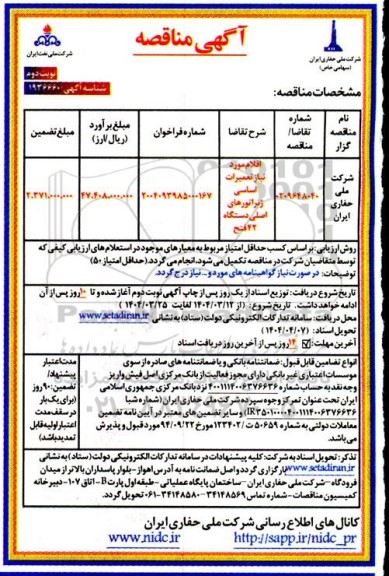 آگهی مناقصه
شرکت ملی نفت ایران
شرکت ملی حفاری ایران
(سهامی خاص)
نوبت دوم
شناسه آگهی: ۱۹۳۶۶۶۰
مشخصات مناقصه:
نام مناقصه گزار
شماره تقاضا/ مناقصه
شرح تقاضا
شماره فراخوان
مبلغ برآورد (ریال/ارز)
مبلغ تضمین
شرکت ملی حفاری ایران
اقلام مورد نیاز تعمیرات اساسی ژنراتورهای اصلی دستگاه ۴۲ فتح
۲۰۰۴۰۹۳۹۸۵۰۰۰۱۶۷
۴۷.۴۰۸.۰۰۰.۰۰۰
۲.۳۷۱.۰۰۰.۰۰۰
روش ارزیابی: براساس کسب حداقل امتیاز مربوط به معیارهای موجود در استعلام های ارزیابی کیفی که
توسط متقاضیان شرکت در مناقصه تکمیل می شود، انجام می گردد. (حداقل امتیاز ۵۰)
توضیحات: در صورت نیاز گواهینامه های مورد و... نیز درج گردد.
تاریخ شروع دریافت: توزیع اسناد از یک روز پس از چاپ آگهی نوبت دوم آغاز شده و تا ۱۰ روز پس از آن
ادامه خواهد داشت. تاریخ شروع: (از ۱۴۰۴/۰۳/۱۲ لغایت ۱۴۰۴/۰۳/۲۵)
محل دریافت: سامانه تدارکات الکترونیکی دولت (ستاد) به نشانی www.setadiran.ir
تحویل اسناد: (۱۴۰۴/۰۴/۰۷)
آخرین مهلت: ۱۴ روز پس از آخرین روز دریافت اسناد
انواع تضامین قابل قبول: ضمانتنامه بانکی و یا ضمانتنامه های صادره از سوی
موسسات اعتباری غیر بانکی دارای مجوز فعالیت از بانک مرکزی، اصل فیش واریز
وجه نقد به حساب شماره ۴۰۰۱۱۱۴۰۰۶۳۷۶۶۳۶ نزد بانک مرکزی جمهوری اسلامی
ایران تحت عنوان تمرکز وجوه سپرده شرکت ملی حفاری ایران (شماره شبا
) و سایر تضمین های معتبر در آیین نامه تضمین
معاملات دولتی به شماره ۱۲۳۴۰۲/ت ۵۰۶۵۹ ه مورخ ۹۴/۰۹/۲۲ مورد قبول و پذیرش
می باشد.
مدت اعتبار
پیشنهاد/
تضمین: ۹۰ روز
(برای یک بار
در سقف مدت
اعتبار اولیه قابل
تمدید باشد)
تذکر: تحویل اسناد به شرکت: کلیه پیشنهادات در سامانه تدارکات الکترونیکی دولت (ستاد) به نشانی
www.setadiran.ir بارگزاری گردد و اصل ضمانت نامه به آدرس اهواز-بلوار پاسداران بالاتر از میدان
فرودگاه-شرکت ملی حفاری ایران-ساختمان پایگاه عملیاتی-طبقه اول پارت B-اتاق ۱۰۷-دبیرخانه
کمیسیون مناقصات-شماره تماس ۳۴۱۴۸۵۶۹-۳۴۱۴۸۵۸۰-۰۶۱ تحویل گردد.
کانال های اطلاع رسانی شرکت ملی حفاری ایران
www.nidc.ir
http://sapp.ir/nidc_pr